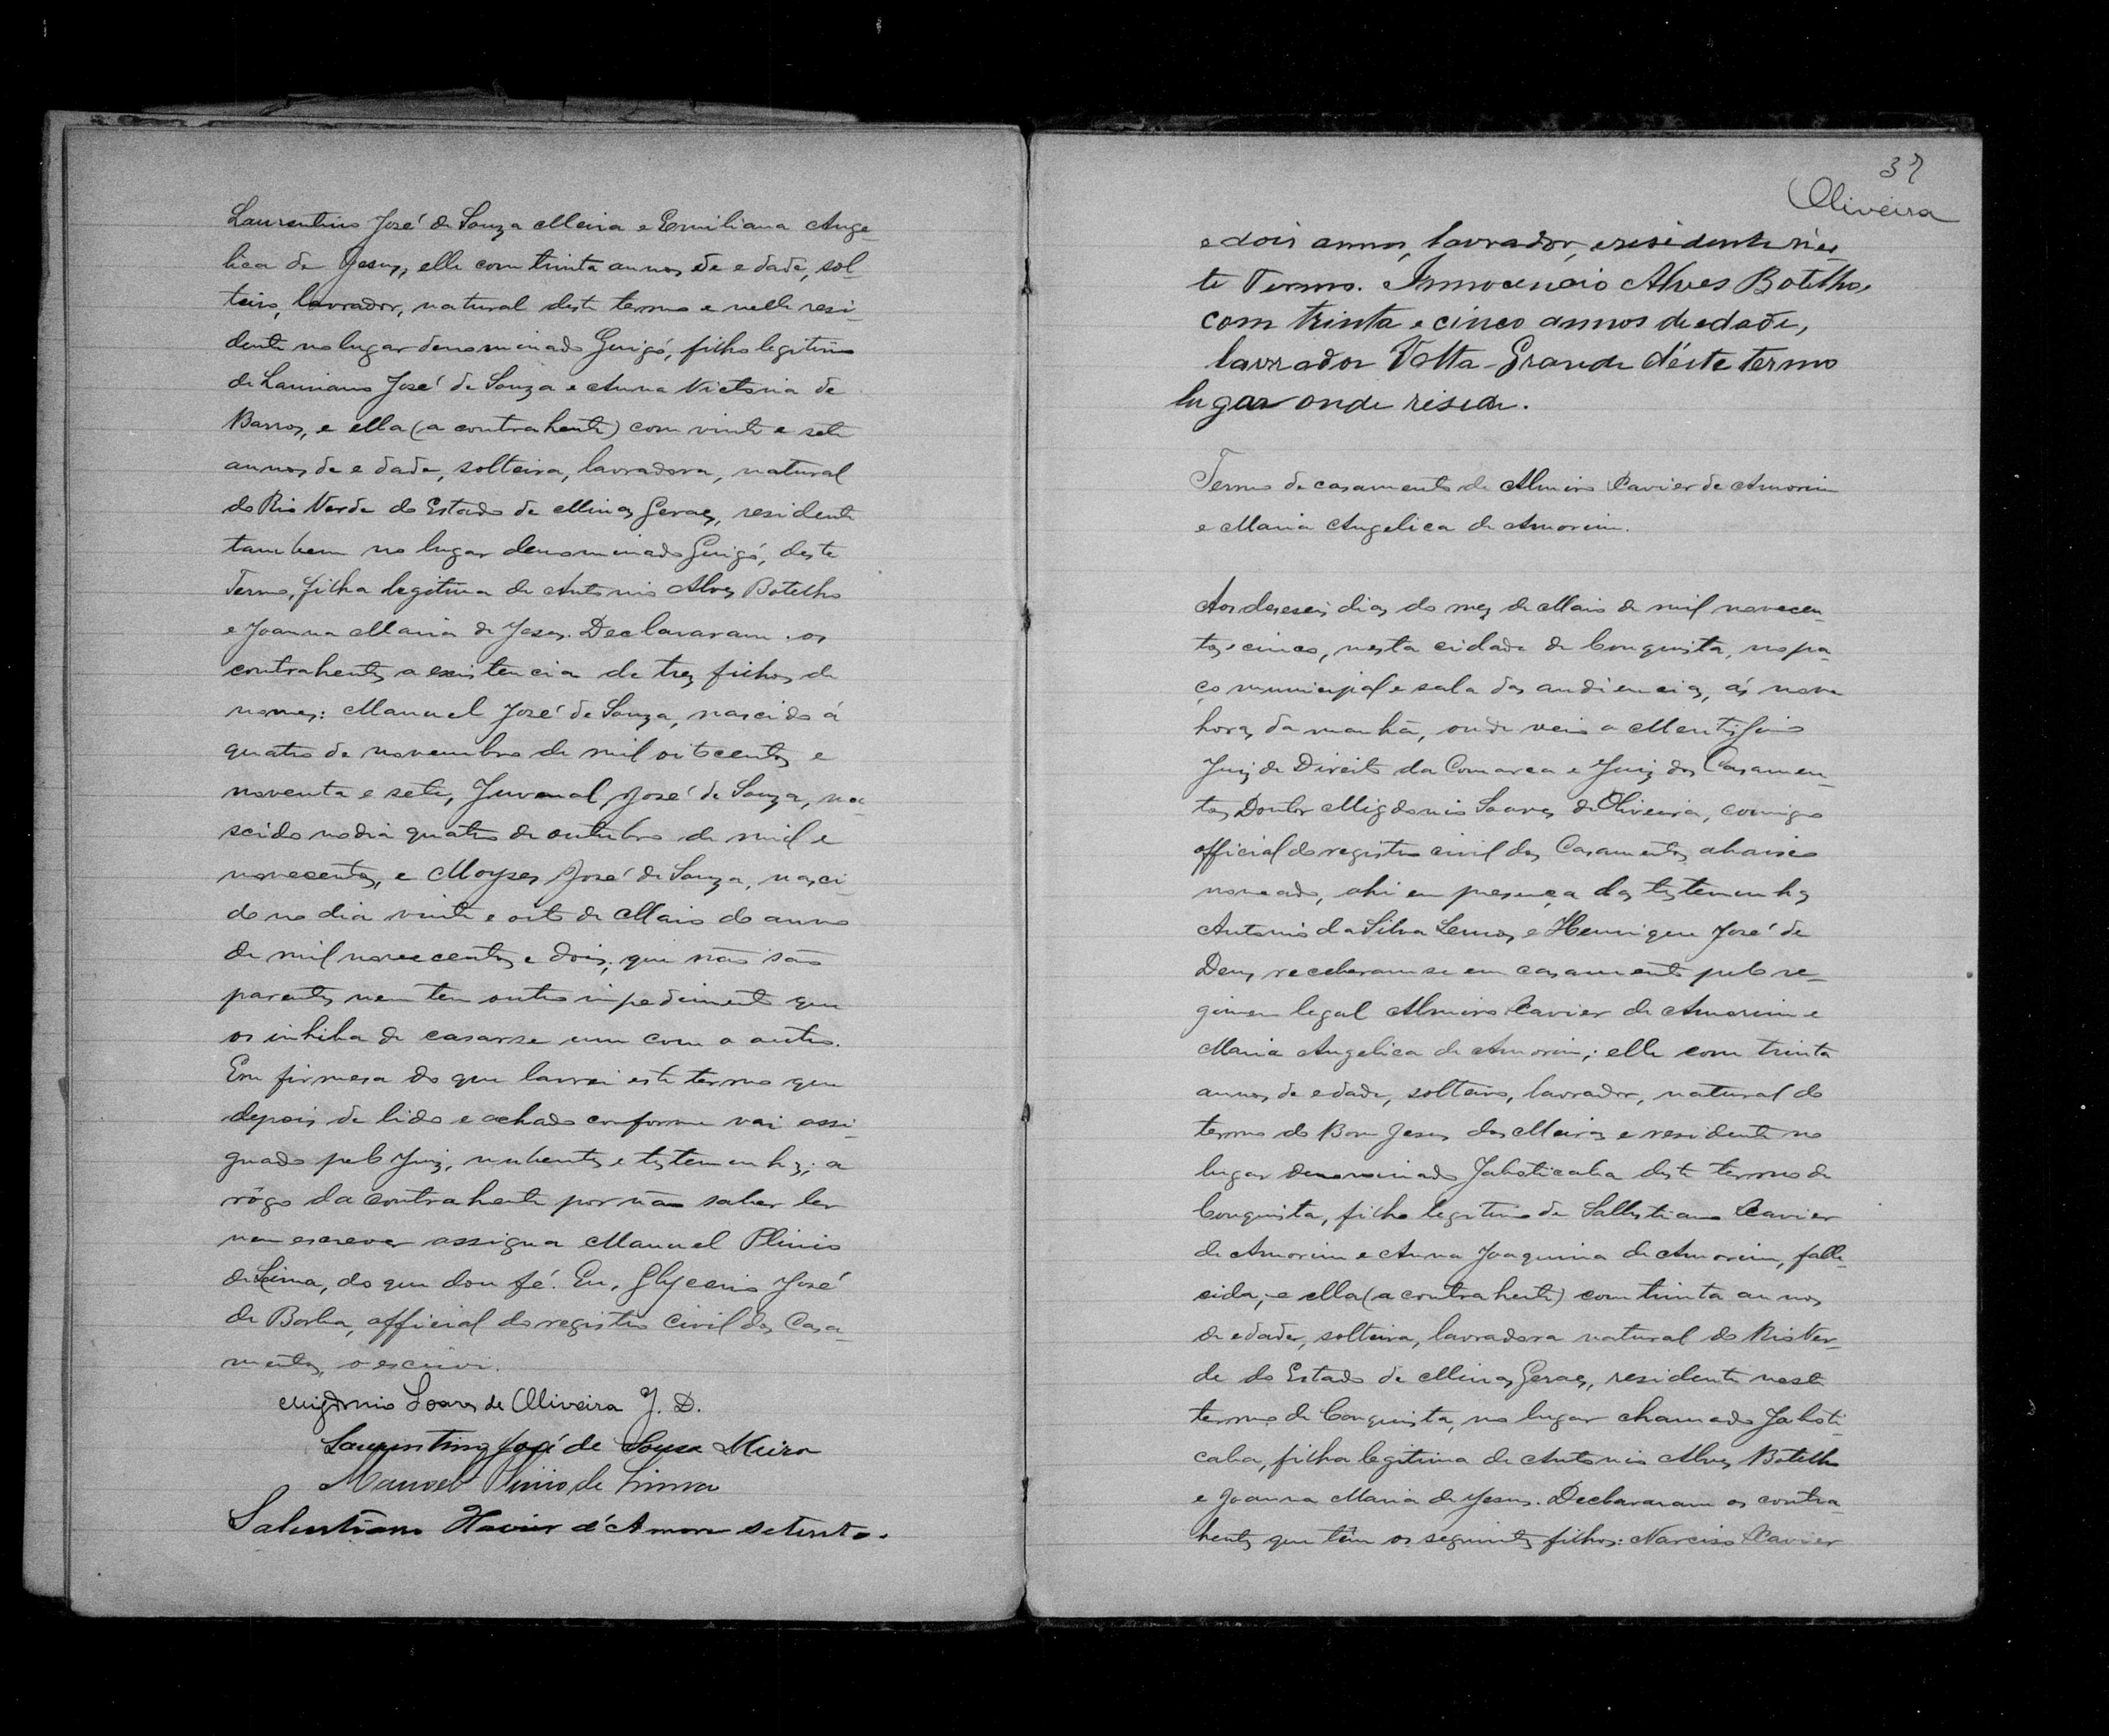 Laurentino José de Souza Meira e Emiliana Ange-
lica de Jesus, elle com trinta annos de edade, sol-
teiro, lavrador, natural deste termo e nelle resi-
dente no lugar denominado Guigó, filho legitimo
de Lauriano José de Souza e Anna Victoria de
Barros, e ella (a contrahente) com vinte e sete
annos de edade, solteira, lavradora, natural
do Rio Verde do Estado de Minas Geraes, residente
tambem no lugar denominado Guigó, deste
Termo, filha legitima de Antonio Alves Botelho
e Joanna Maria de Jesus. Declararam os
contrahentes a existencia de tres filhos de
nomes: Manuel José de Souza, nascido á
quatro de novembro de mil oitocentos e
noventa e sete, Juvenal José de Souza, na-
scido no dia quatro de outubro de mil e
novecentos, e Moyses José de Souza, nasci-
do no dia vinte e oito de Maio do anno
de mil novecentos e dois; que não são
parentes nem tem outro impedimento que
os inhiba de casarse um com o outro.
Em firmesa do que lavrei este termo que
depois de lido e achado conforme vai assi-
gnado pelo Juiz, nubentes e testemunhas; a
rôgo da contrahente por não saber ler
nem escrever assigna Manuel Plinio
de Lima, do que dou fé. Eu, Glycerio José
de Borba, official do registro Civil dos Casa-
mentos, o escrevi.
Migdonio Soares de Oliveira J. D.
Laurentino José de Sousa Meira
Manoel Plinio de Lima
Salustiano Xavier d'Amorim setenta
37
Oliveira
e dois annos, lavrador, e residente nes-
te Termo. Innocencio Alves Botelho,
com trinta e cinco annos de edade,
lavrador Volta-Grande déste termo
lugar onde reside.
Termo de casamento de Almiro Xavier de Amorim
e Maria Angelica de Amorim.
Aos deseseis dias do mez de Maio de mil novecen-
tos e cinco, nesta cidade de Conquista, no pa-
ço municipal e sala das audiencias, ás nove
horas da manhã, onde veio o Meritissimo
Juiz de Direito da Comarca e Juiz dos Casamen-
tos, Doutor Migdonio Soares de Oliveira, comigo
official do registro civil dos Casamentos abaixo
nomeado, ahi em presença das testemunhas
Antonio da Silva Lemos, e Henrique José de
Deus, receberamse em casamento pelo re-
gimen legal Almiro Xavier de Amorim e
Maria Angelica de Amorim; elle com trinta
annos de edade, solteiro, lavrador, natural do
termo do Bom Jesus dos Meiras e residente no
lugar denominado Jaboticaba deste termo de
Conquista, filho legitimo de Sallustiano Xavier
de Amorim e Anna Joaquina de Amorim, falle-
cida; e ella (a contrahente) com trinta annos
de edade, solteira, lavradora natural do Rio Ver-
de do Estado de Minas Geraes, residente neste
termo de Conquista, no lugar chamado Jaboti-
caba, filha legitima de Antonio Alves Botelho
e Joanna Maria de Jesus. Declararam os contra-
hentes que têm os seguintes filhos: Narciso Xavier